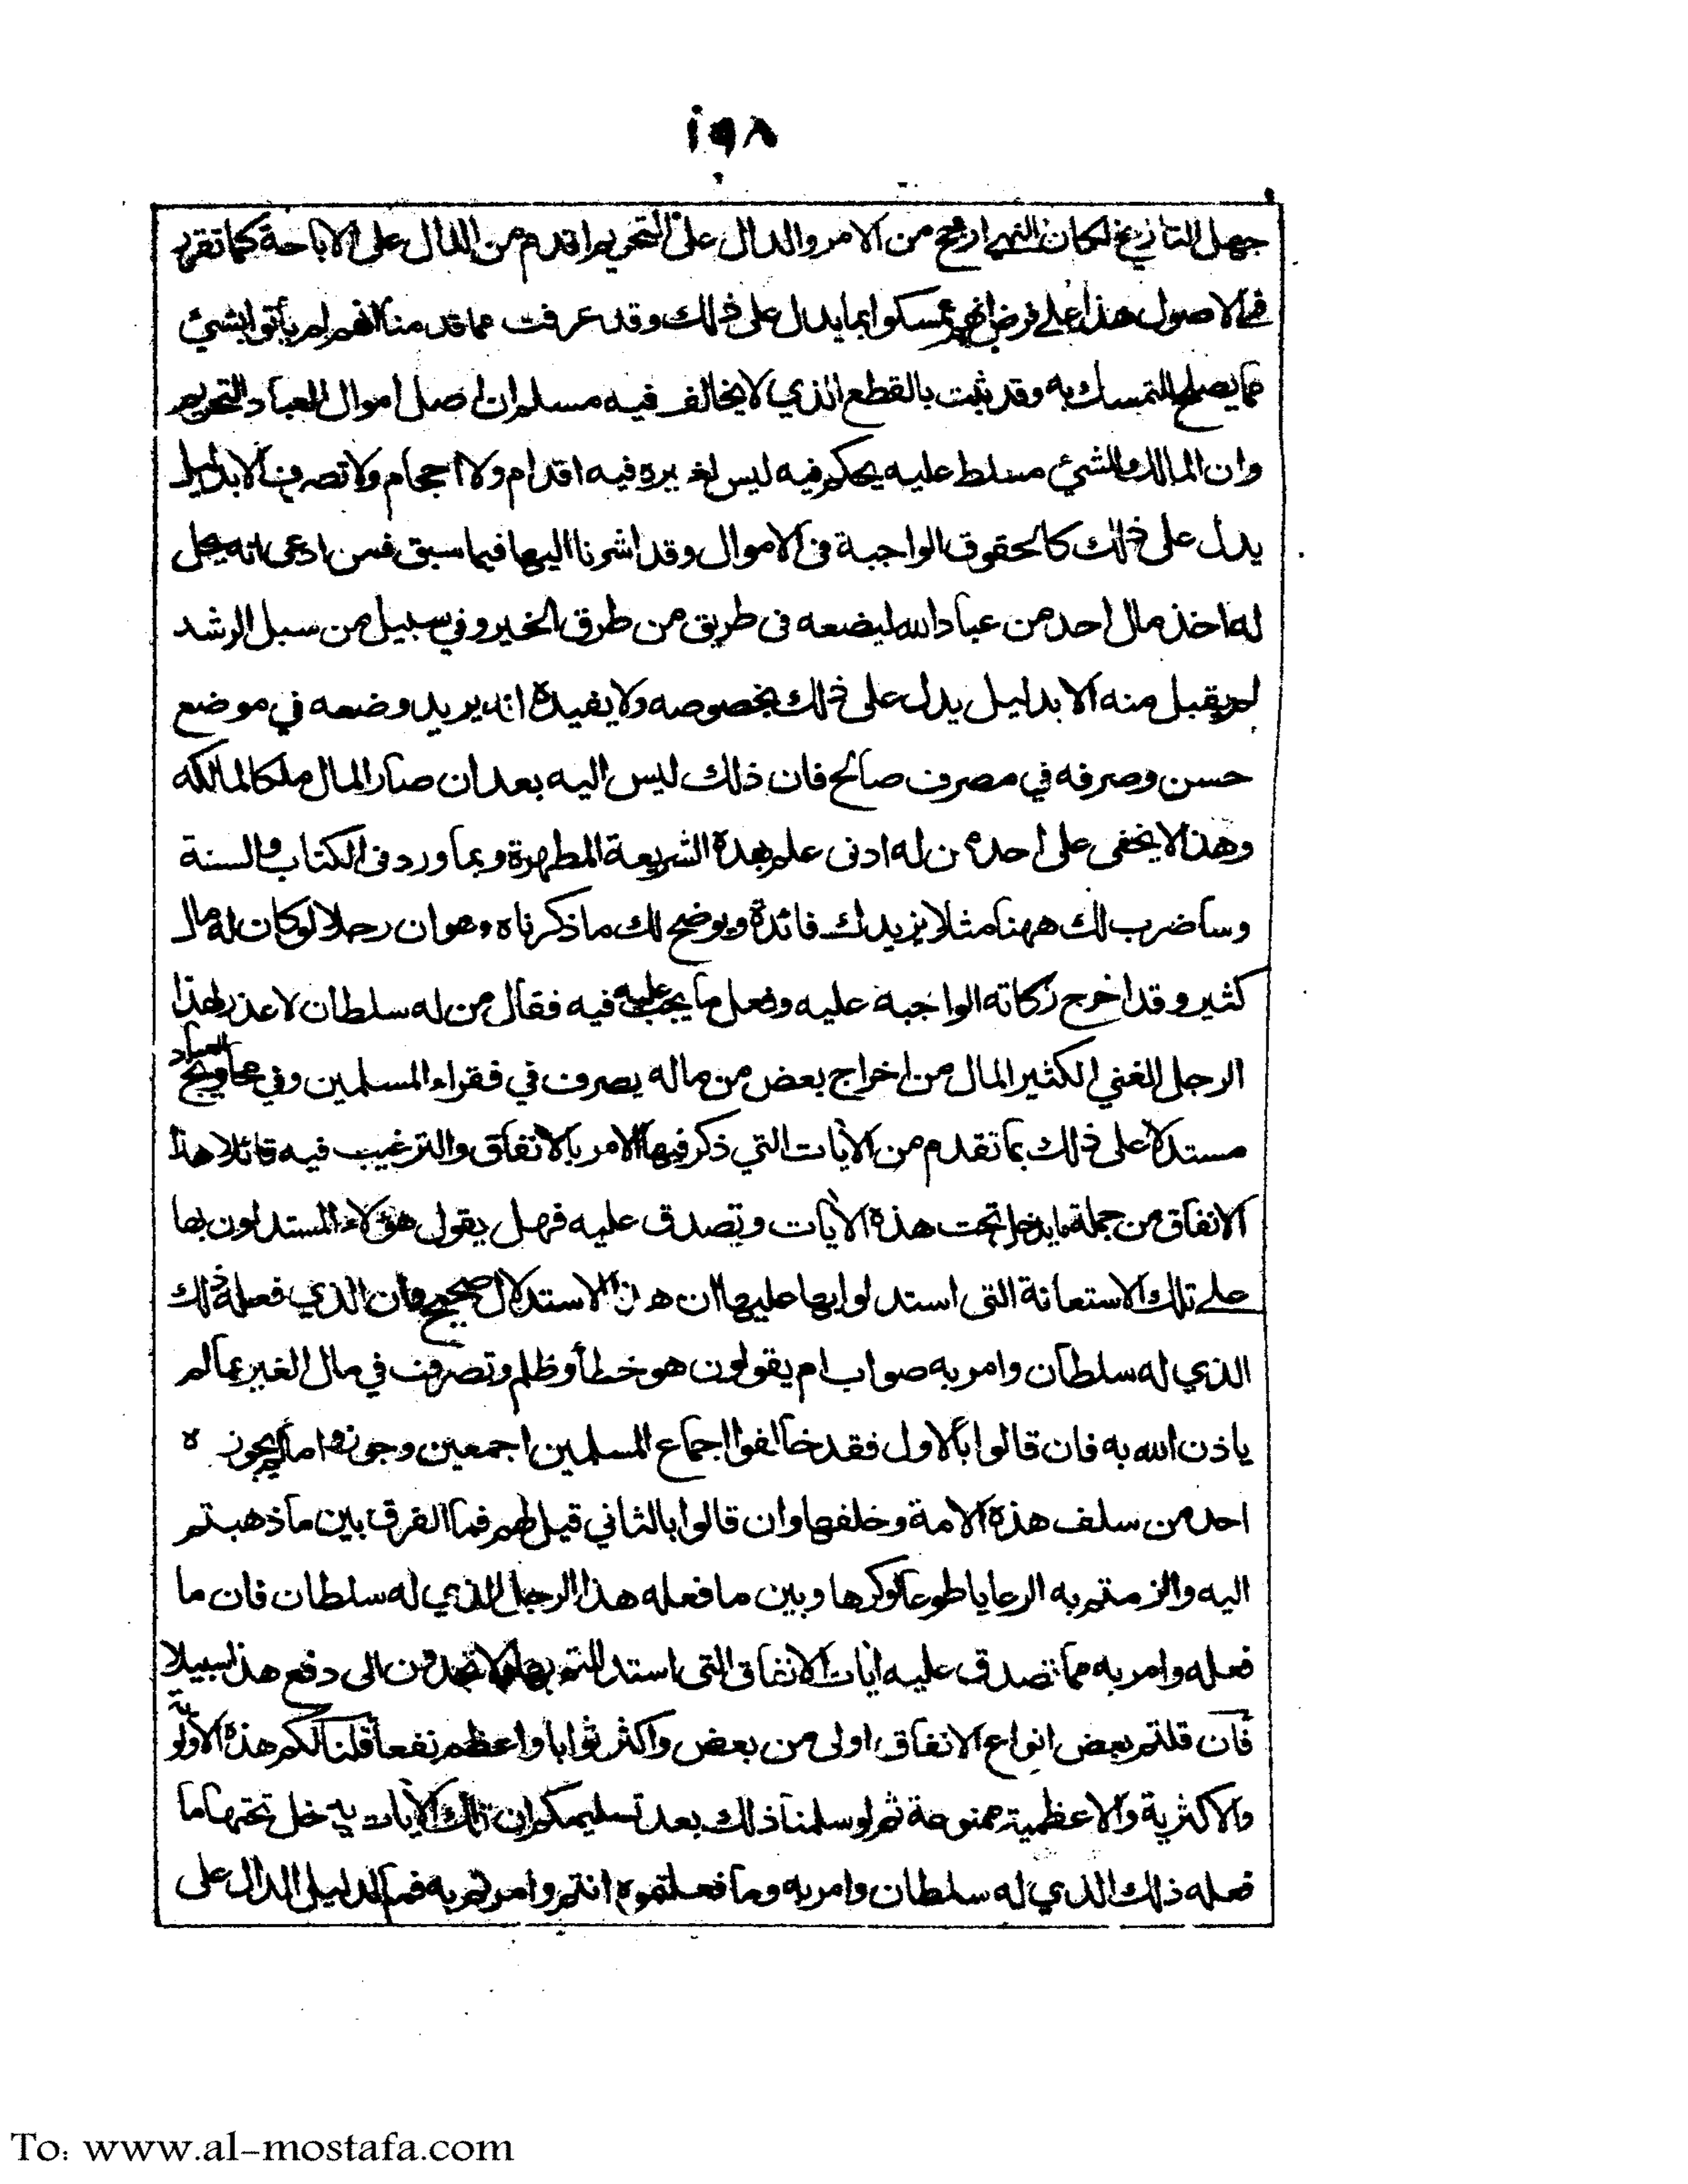 ١٩٨
جهل التاريخ لكان النهي ارجح من الامر والدال على التحريم اقدم من الدال على الاباحة كما تقرر
في الاصول هذا على فرض انهم تمسكوا بما يدل على ذلك وقد عرفت مما قدمنا انهم لم يأتوا بشئ
مما يصلح للتمسك به وقد ثبت بالقطع الذي لا يخالف فيه مسلم ان اصل اموال العباد التحريم
وان المالك للشئ مسلط عليه يحكم فيه ليس لغيره فيه اقدام ولا احجام ولا تصرف الا بدليل
يدل على ذلك كالحقوق الواجبة في الاموال وقد اشرنا اليها فيما سبق فمن ادعى انه يحل
له اخذ مال احد من عباد الله ليضعه في طريق من طرق الخير وفي سبيل من سبل الرشد
لم يقبل منه الا بدليل يدل على ذلك بخصوصه ولا يفيده انه يريد وضعه في موضع
حسن وصرفه في مصرف صالح فان ذلك ليس اليه بعد ان صار المال ملكا لمالكه
وهذا لا يخفى على احد من له ادنى علم بهذه الشريعة المطهرة وبما ورد في الكتاب والسنة
وساضرب لك ههنا مثلا يزيدك فائدة ويوضح لك ما ذكرناه وهو ان رجلا لو كان له مال
كثير وقد اخرج زكاته الواجبة عليه وفعل ما يجب عليه فيه فقال من له سلطان لا عذر لهذا
الرجل الغني الكثير المال من اخراج بعض من ماله يصرف في فقراء المسلمين وفي محاويج العباد
مستدلا على ذلك بما تقدم من الايات التي ذكر فيها الامر بالانفاق والترغيب فيه قائلا هذا
الانفاق من جملة ما يدخل تحت هذه الايات وتصدق عليه فهل يقول هؤلاء المستدلون بها
على تلك الاستعانة التي استدلوا بها عليها ان هذا الاستدلال صحيح وان الذي فعله ذلك
الذي له سلطان وامر به صواب ام يقولون هو خطأ وظلم وتصرف في مال الغير بما لم
ياذن الله به فان قالوا بالاول فقد خالفوا اجماع المسلمين اجمعين وجوزوا ما لم يجوزه
احد من سلف هذه الامة وخلفها وان قالوا بالثاني قيل لهم فما الفرق بين ما ذهبتم
اليه والزمتم به الرعايا طوعا وكرها وبين ما فعله هذا الرجل الذي له سلطان فان ما
فعله وامر به مما تصدق عليه ايات الانفاق التي استدللتم بها ولا تجدون الى دفع هذا سبيلا
فان قلتم بعض انواع الانفاق اولى من بعض واكثر ثوابا واعظم نفعا قلنا لكم هذه الاولوية
والاكثرية والاعظمية ممنوعة ثم لو سلمنا ذلك بعد تسليمكم ان تلك الايات يدخل تحتها ما
فعله ذلك الذي له سلطان وامر به وما فعلتموه انتم وامرتم به فما الدليل الدال على
To: www.al-mostafa.com